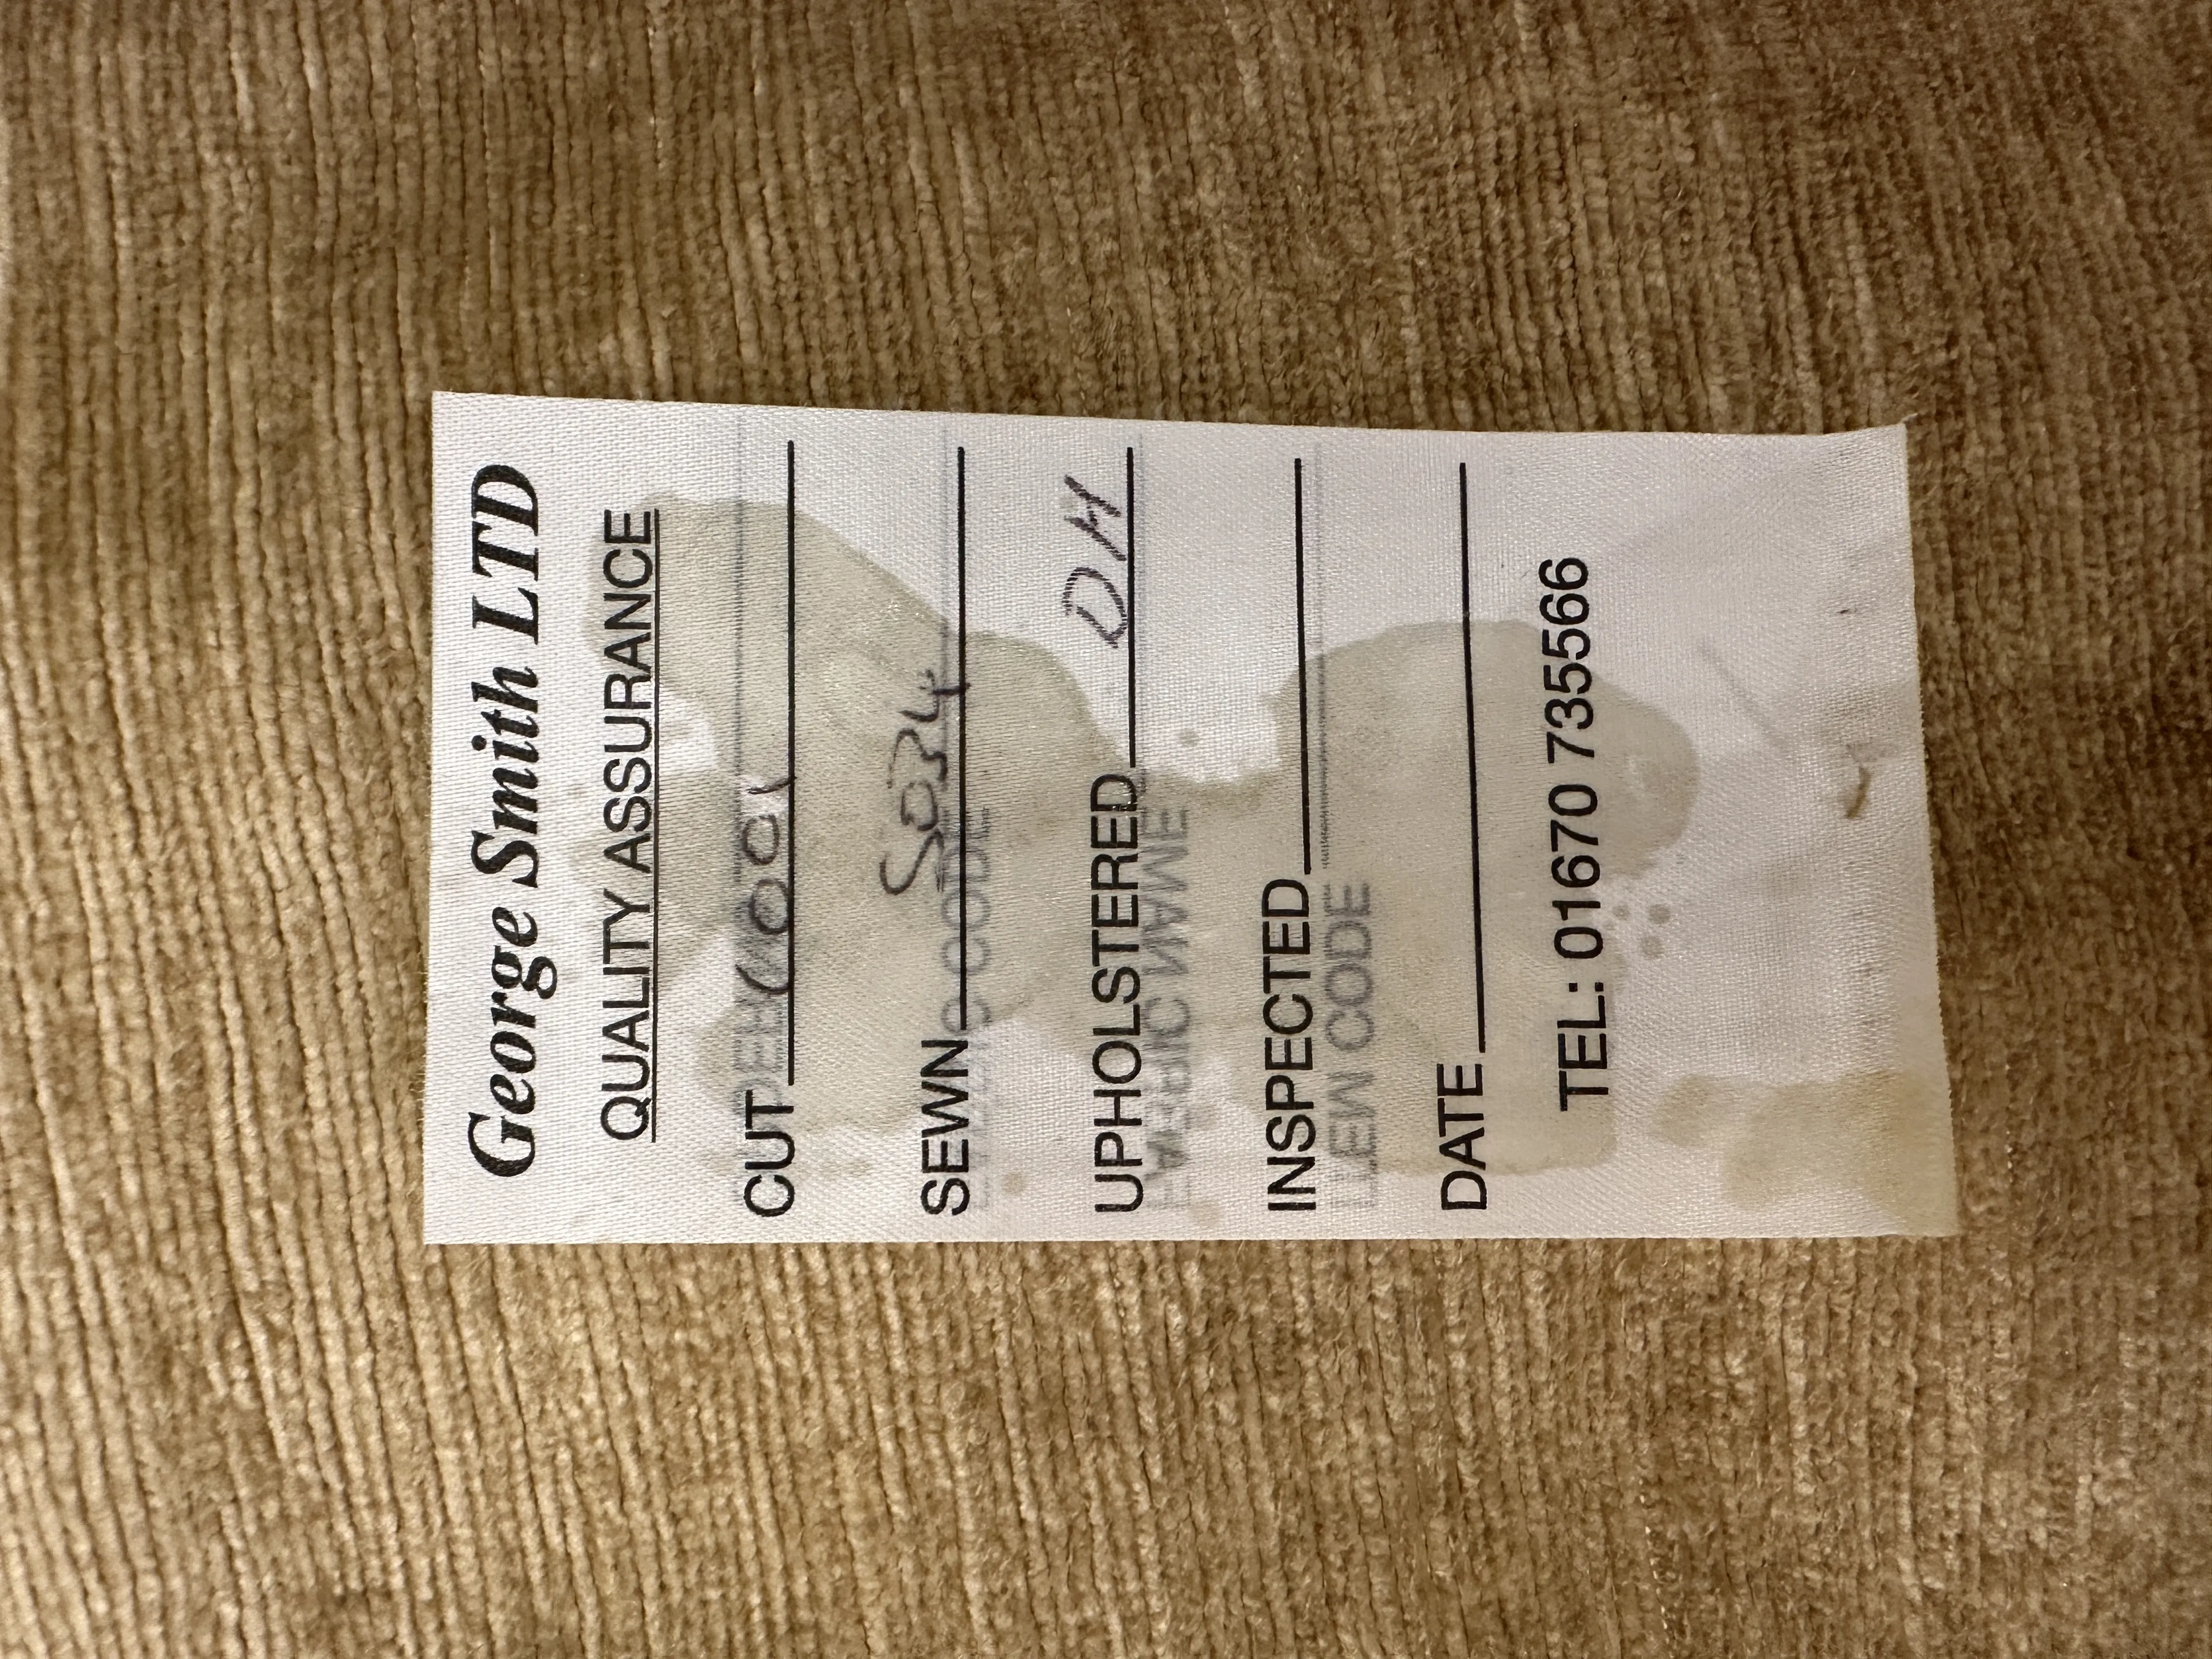 George Smith LTD
QUALITY ASSURANCE
CUT
SEWN S034
UPHOLSTERED DH
INSPECTED
DATE
TEL: 01670 735566
ITEM CODE